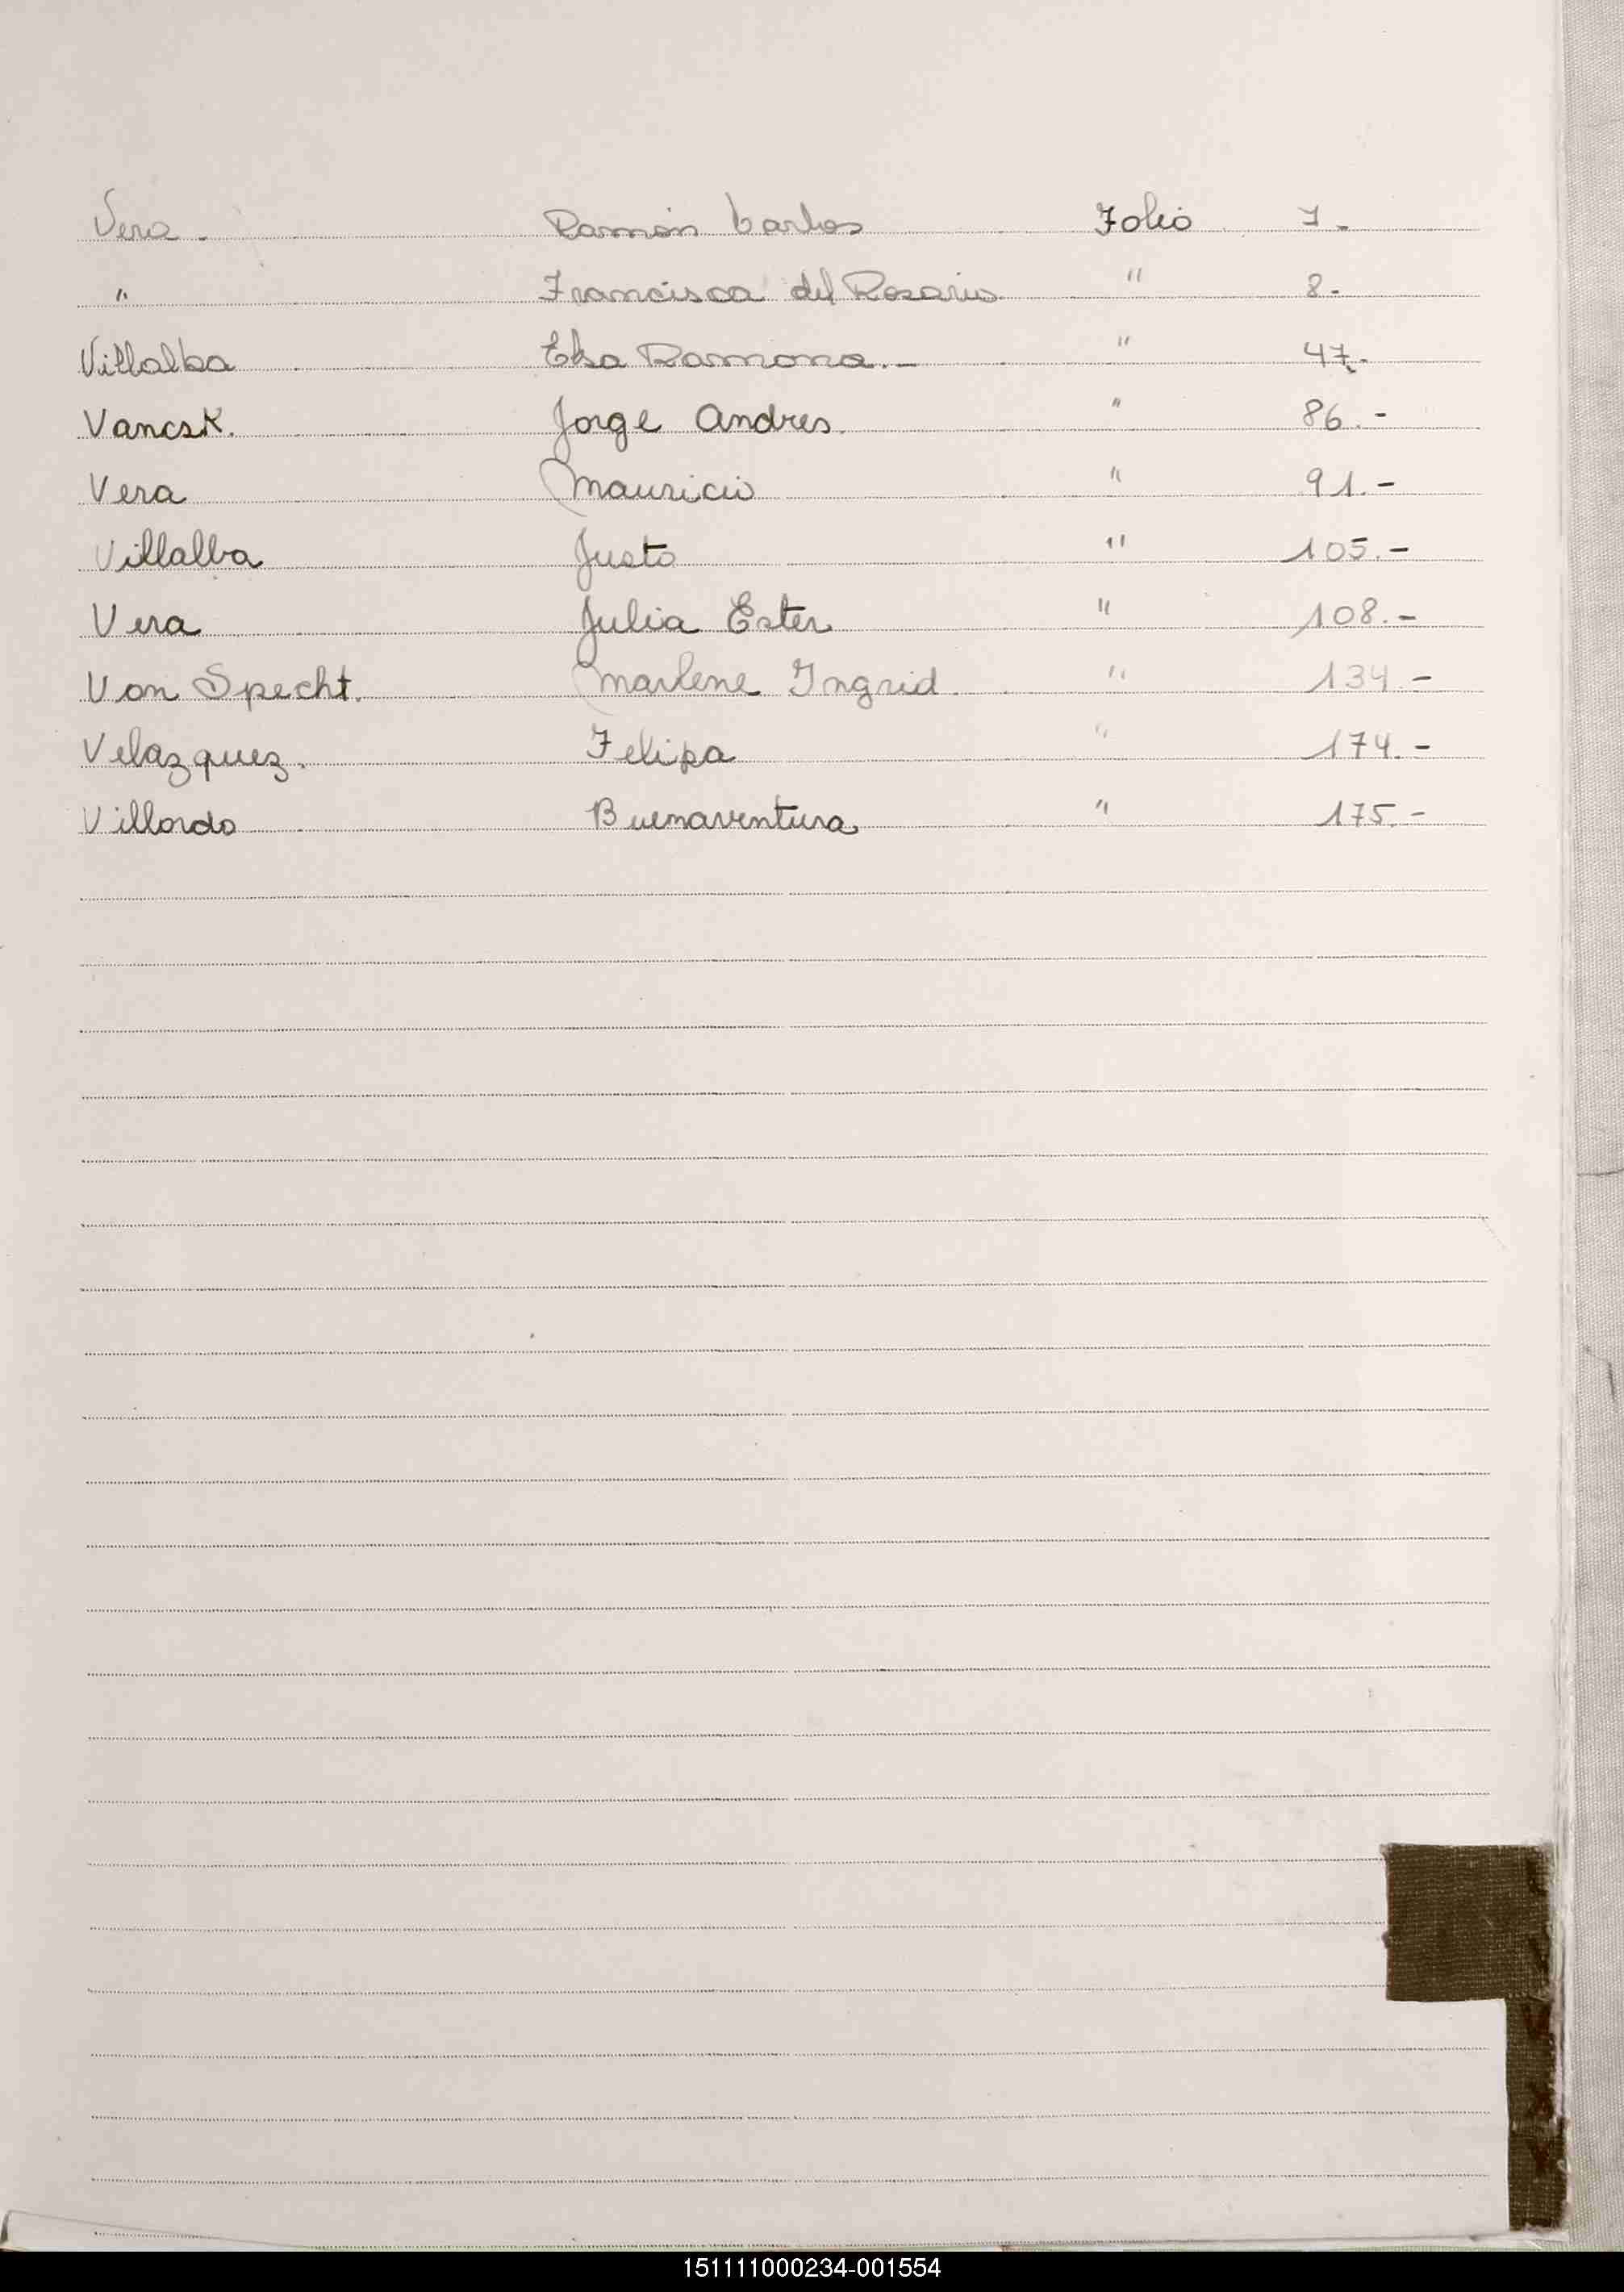 Vera. Ramón Carlos Folio 7.-
" Francisca del Rosario " 8.-
Villalba Elsa Ramona.- " 47.-
Vancsk. Jorge Andres. " 86.-
Vera Mauricio " 91.-
Villalba Justo " 105.-
Vera Julia Ester " 108.-
Von Specht. Marlene Ingrid. " 134.-
Velazquez. Felipa " 174.-
Villordo Buenaventura " 175.-
151111000234-001554